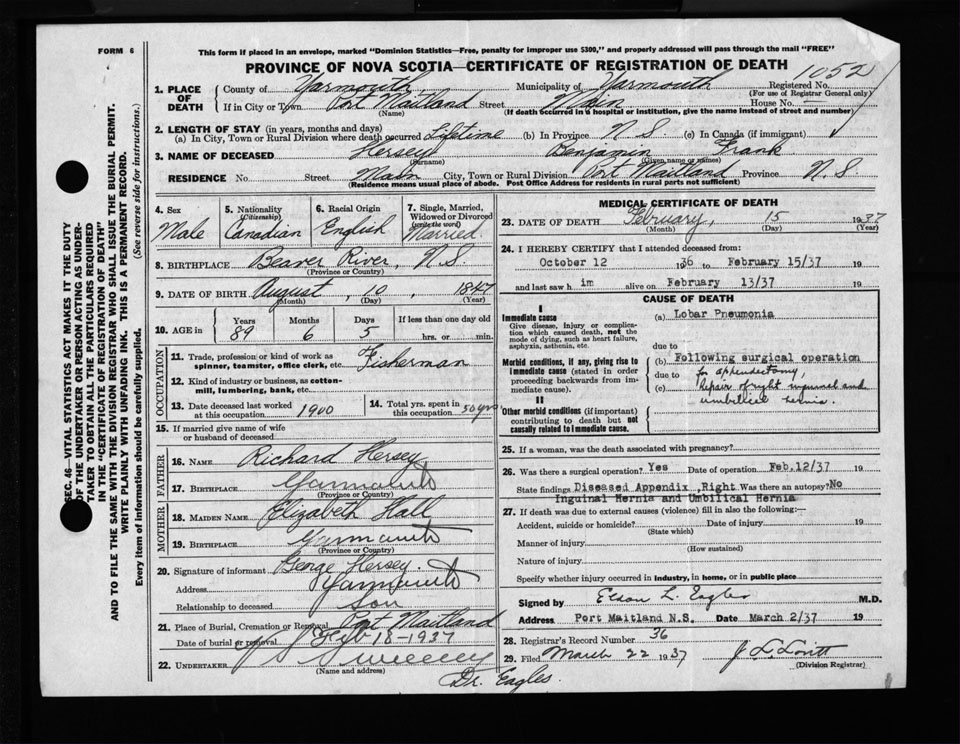 FORM 6
This form if placed in an envelope, marked "Dominion Statistics—Free, penalty for improper use $300," and properly addressed will pass through the mail "FREE"
PROVINCE OF NOVA SCOTIA—CERTIFICATE OF REGISTRATION OF DEATH
1052
1. PLACE OF DEATH
County of Yarmouth Municipality of Yarmouth Registered No.
(For use of Registrar General only)
If in City or Town Port Maitland Street Main House No. —
(Name) (If death occurred in a hospital or institution, give the name instead of street and number)
2. LENGTH OF STAY (in years, months and days)
(a) In City, Town or Rural Division where death occurred Lifetime (b) In Province N.S. (c) In Canada (if immigrant)
3. NAME OF DECEASED Hersey Benjamin Frank
(Surname) (Given name or names)
RESIDENCE No. Street Main City, Town or Rural Division Port Maitland Province N.S.
(Residence means usual place of abode. Post Office Address for residents in rural parts not sufficient)
4. Sex
Male
5. Nationality
(Citizenship)
Canadian
6. Racial Origin
English
7. Single, Married, Widowed or Divorced
(write the word)
Married
8. BIRTHPLACE Beaver River, N.S.
(Province or Country)
9. DATE OF BIRTH August, 10, 1847
(Month) (Day) (Year)
10. AGE in
Years Months Days If less than one day old
89 6 5 hrs. or min.
OCCUPATION
11. Trade, profession or kind of work as spinner, teamster, office clerk, etc. Fisherman
12. Kind of industry or business, as cotton-mill, lumbering, bank, etc.
13. Date deceased last worked at this occupation 1900
14. Total yrs. spent in this occupation 50 yrs
15. If married give name of wife or husband of deceased
FATHER
16. NAME Richard Hersey
17. BIRTHPLACE Yarmouth
(Province or Country)
MOTHER
18. MAIDEN NAME Elizabeth Hall
19. BIRTHPLACE Yarmouth
(Province or Country)
20. Signature of informant George Hersey
Address Yarmouth
Relationship to deceased son
21. Place of Burial, Cremation or Removal Port Maitland
Date of burial or removal Feb 18-1937
22. UNDERTAKER Sweeney
(Name and address)
Dr. Eagles.
MEDICAL CERTIFICATE OF DEATH
23. DATE OF DEATH February, 15 1937
(Month) (Day) (Year)
24. I HEREBY CERTIFY that I attended deceased from:
October 12 1936 to February 15/37 19
and last saw him alive on February 13/37 19
CAUSE OF DEATH
I
Immediate cause
Give disease, injury or complication which caused death, not the mode of dying, such as heart failure, asphyxia, asthenia, etc.
(a) Lobar Pneumonia
due to
Morbid conditions, if any, giving rise to immediate cause (stated in order proceeding backwards from immediate cause).
(b) Following surgical operation
due to for appendectomy,
(c) Repair of right inguinal and
umbilical hernia.
II
Other morbid conditions (if important) contributing to death but not causally related to immediate cause.
25. If a woman, was the death associated with pregnancy?
26. Was there a surgical operation? Yes Date of operation Feb.12/37 19
State findings Diseased Appendix, Right Was there an autopsy? No
Inguinal Hernia and Umbilical Hernia
27. If death was due to external causes (violence) fill in also the following:—
Accident, suicide or homicide? Date of injury 19
(State which)
Manner of injury
(How sustained)
Nature of injury
Specify whether injury occurred in industry, in home, or in public place
Signed by Elson L. Eagles M.D.
Address Port Maitland N.S. Date March 2/37 19
28. Registrar's Record Number 36
29. Filed March 22 1937 J L Lovitt
(Division Registrar)
SEC. 46—VITAL STATISTICS ACT MAKES IT THE DUTY
OF THE UNDERTAKER OR PERSON ACTING AS UNDER-
TAKER TO OBTAIN ALL THE PARTICULARS REQUIRED
IN THE "CERTIFICATE OF REGISTRATION OF DEATH"
AND TO FILE THE SAME WITH THE DIVISION REGISTRAR WHO SHALL ISSUE THE BURIAL PERMIT.
WRITE PLAINLY WITH UNFADING INK. THIS IS A PERMANENT RECORD.
Every item of information should be carefully supplied. (See reverse side for instructions.)